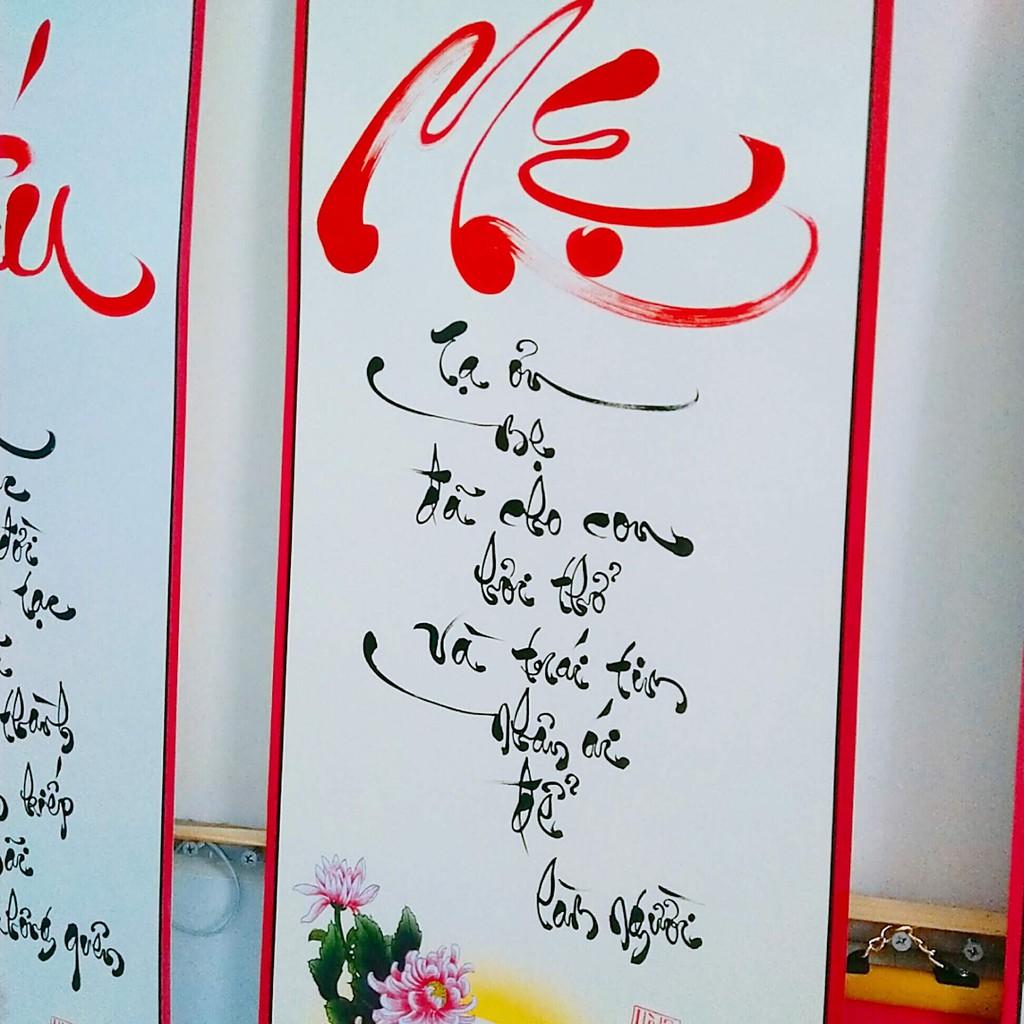 Mẹ
Tạ ơn
mẹ
đã cho con
hơi thở
và trái tim
nhân ái
để
làm người
đời
tạc
thành
kiếp
không quên